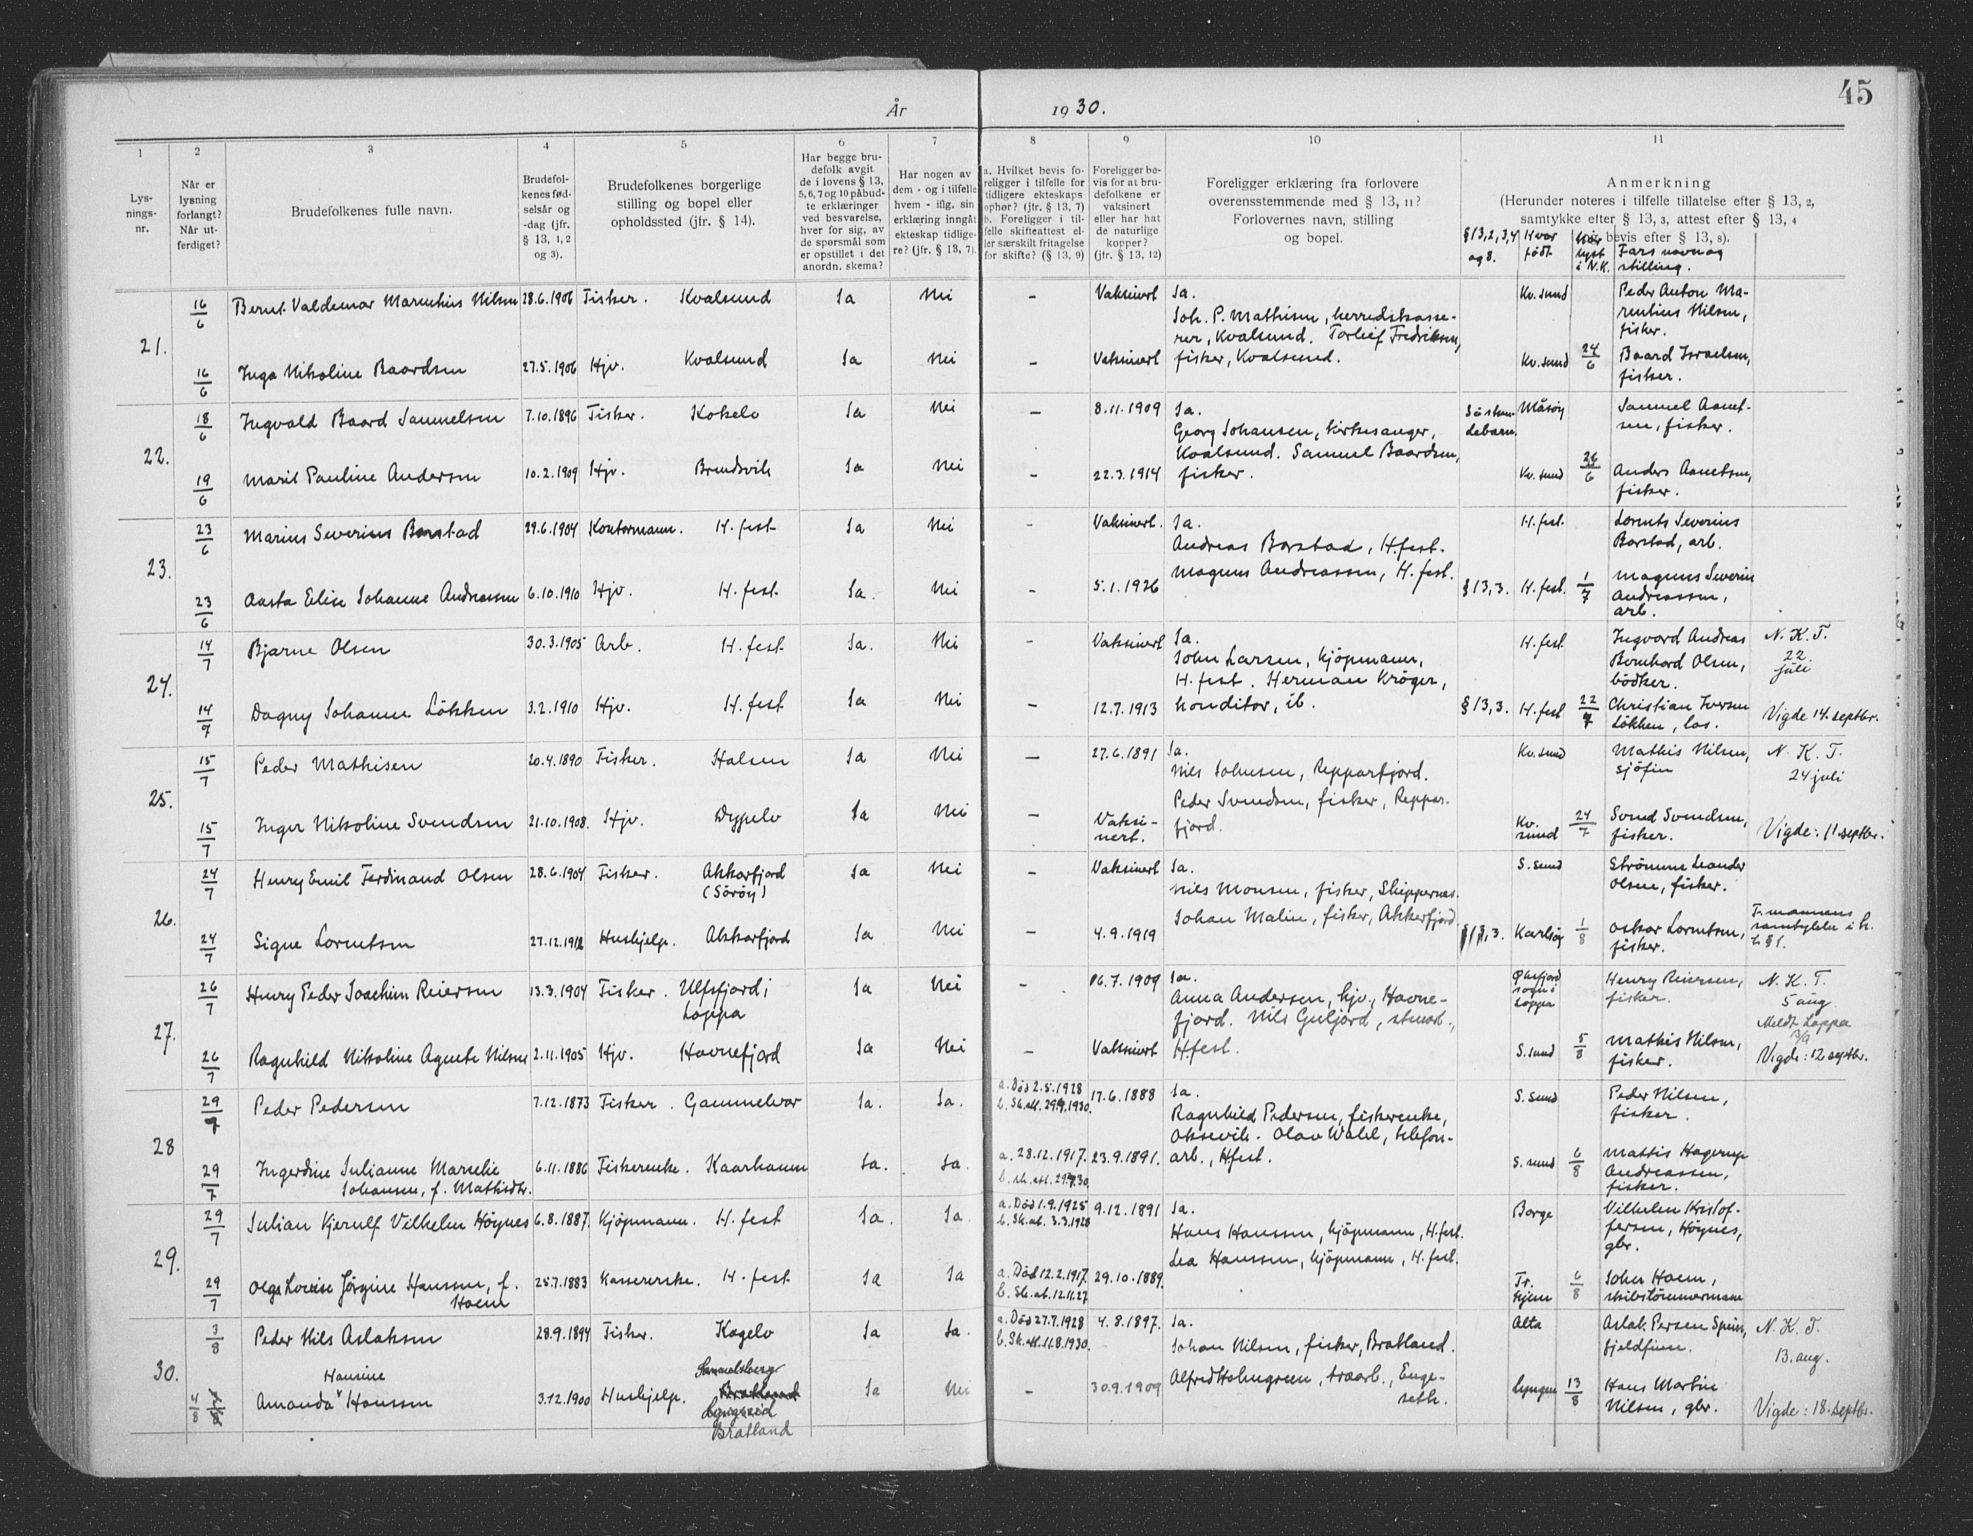 45
År 1930.
1 2 3 4 5 6 7 8 9 10 11
Lysningsnr.
Når er lysning forlangt? Når utferdiget?
Brudefolkenes fulle navn.
Brudefolkenes fødselsår og -dag (jfr. § 13, 1, 2 og 3).
Brudefolkenes borgerlige stilling og bopel eller opholdssted (jfr. § 14).
Har begge brudefolk avgit de i lovens § 13, 5, 6, 7 og 10 påbudte erklæringer ved besvarelse, hver for sig, av de spørsmål som er opstillet i det anordn. skema?
Har nogen av dem - og i tilfelle hvem - iflg. sin erklæring inngått ekteskap tidligere? (jfr. § 13, 7).
a. Hvilket bevis foreligger i tilfelle for tidligere ekteskaps ophør? (jfr. § 13, 7) b. Foreligger i tilfelle skifteattest eller særskilt fritagelse for skifte? (§ 13, 9)
Foreligger bevis for at brudefolkene er vaksinert eller har hat de naturlige kopper? (jfr. § 13, 12)
Foreligger erklæring fra forlovere overensstemmende med § 13, 11? Forlovernes navn, stilling og bopel.
Anmerkning
(Herunder noteres i tilfelle tillatelse efter § 13, 2, samtykke efter § 13, 3, attest efter § 13, 4 bevis efter § 13, 8).
§ 13,2,3,4 og 8. Hvor født. Når lyst i N.K. Fars navn og stilling.
21.
16/6 Bernt Valdemar Marentius Nilsen 28.6.1906 Fisker. Kvalsund Ja Nei - Vaksinert Ja.
Joh. P. Mathisen, herredskasserer, Kvalsund. Torleif Fredriksen, fisker, Kvalsund.
Kv.sund Peder Anton Marentius Nilsen, fisker.
16/6 Inga Nikoline Baardsen 27.5.1906 Hjv. Kvalsund Ja Nei - Vaksinert
Kv.sund 24/6 Baard Israelsen, fisker.
22.
18/6 Ingvald Baard Samuelsen 7.10.1896 Fisker. Kokelv Ja Nei - 8.11.1909 Ja.
Georg Johansen, kirkesanger, Kvalsund. Samuel Baardsen, fisker.
Søskendebarn. Måsøy Samuel Aanetsen, fisker.
19/6 Marit Pauline Andersen 10.2.1909 Hjv. Brendsvik Ja Nei - 22.3.1914
Kv.sund 26/6 Anders Aanetsen, fisker.
23.
23/6 Marius Severius Barstad 29.6.1904 Kontormann. H.fest Ja Nei - Vaksinert. Ja.
Andreas Barstad, H.fest. Magnus Andreassen, H.fest.
H.fest. Lorents Severius Barstad, arb.
23/6 Aasta Elise Johanne Andreassen 6.10.1910 Hjv. H.fest. Ja. Nei - 5.1.1926
§ 13,3. H.fest. 1/7 Magnus Severin Andreassen, arb.
24.
14/7 Bjarne Olsen 30.3.1905 Arb. H.fest Ja. Nei - Vaksinert Ja.
John Larsen, kjøpmann, H.fest. Herman Krøger, konditor, ib.
H.fest Ingvard Andreas Bernhard Olsen, bødker. N.K.T. 22. juli
14/7 Dagny Johanne Løkken 3.2.1910 Hjv. H.fest Ja Nei - 12.7.1913
§ 13,3. H.fest 22/7 Christian Iversen Løkken, los. Vigde 14. septbr.
25.
15/7 Peder Mathisen 20.4.1890 Fisker. Halsen Ja Nei - 27.6.1891 Ja.
Nils Johnsen, Repparfjord. Peder Svendsen, fisker, Repparfjord.
Kv.sund Mathis Nilsen, sjøfin N.K.T. 24 juli
15/7 Inger Nikoline Svendsen 21.10.1908. Hjv. Dypelv Ja Nei - Vaksinert.
Kv.sund 24/7 Svend Svendsen, fisker. Vigde: 11 septbr.
26.
24/7 Henry Emil Ferdinand Olsen 28.6.1904 Fisker. Akkarfjord (Sørøy) Ja Nei - Vaksinert Ja.
Nils Monsen, fisker, Skippernes. Johan Malin, fisker, Akkarfjord
S.sund Strømme Leander Olsen, fisker.
24/7 Signe Lorentsen 27.12.1912 Hushjelp. Akkarfjord Ja Nei - 4.9.1919
§ 13,3. Karlsøy 1/8 Oskar Lorentsen, fisker.
27.
26/7 Henry Peder Joachim Reiersen 13.3.1904 Fisker. Ulfsfjord i Loppa Ja Nei - 16.7.1909 Ja.
Anna Andersen, hjv., Havnefjord. Nils Guljord, H.fest.
Øksfjord sogn i Loppa Henry Reiersen, fisker. N.K.T. 5 aug. Meldt Loppa
26/7 Ragnhild Nikoline Agnete Nilsen 2.11.1905 Hjv. Havnefjord Ja Nei - Vaksinert
S.sund 5/8 Mathis Nilsen, fisker. Vigde: 12 septbr.
28
29/7 Peder Pedersen 7.12.1873 Fisker. Gammelvær Ja. Ja. a. Død 2.5.1928 17.6.1888 Ja.
Ragnhild Pedersen, fiskerenke, Oksevik. Olav Wahl, telefonarb., Hfest.
S.sund Peder Nilsen, fisker.
29/7 Ingerdine Julianne Marselie Johansen, f. Mathisdtr. 6.11.1886 Fiskerenke. Kaarhamn Ja. Ja a. 28.12.1917. 23.9.1891.
S.sund 6/8 Mattis Hagerup Andreassen, fisker.
29.
29/7 Julian Kjerulf Vilhelm Høynes 6.8.1887. Kjøpmann. H.fest Ja. Ja. a. Død 1.9.1925 b. Sk.at. 3.3.1928 9.12.1891 Ja.
Hans Hanssen, kjøpmann, H.fest. Lea Hanssen, kjøpmann, H.fest.
Borge Vilhelm Kristoffersen, Høynes, gbr.
29/7 Olga Lovise Jørgine Hanssen, f. Haem 25.7.1883 H.fest Ja Ja a. Død 12.2.1917. b. Sk.at. 12.11.27 29.10.1889.
Tr.hjem 6/8 John Haem, skibstømmermann
30.
3/8 Peder Nils Aslaksen 28.9.1894 Fisker. Kogelv Ja Ja. a. Død 27.7.1928 b. Sk.att. 11.8.1930. 4.8.1897. Ja.
Johan Nilsen, fisker, Bratland. Alfred Holmgreen, træarb., Engeseth.
Alta Aslak Persen fjeldfinn. N.K.T. 13. aug.
4/8 Amanda Hansine Hanssen 3.12.1900 Hushjelp. Samuelsberg Bratland Lyngseid Bratland Ja Nei - 30.9.1909
Lyngen 13/8 Hans Martin Nilsen, gbr. Vigde: 18. septbr.